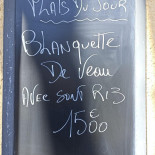 PLATS DU JOUR
BLANQUETTE
DE VEAU
AVEC SONT RIZ
15€00